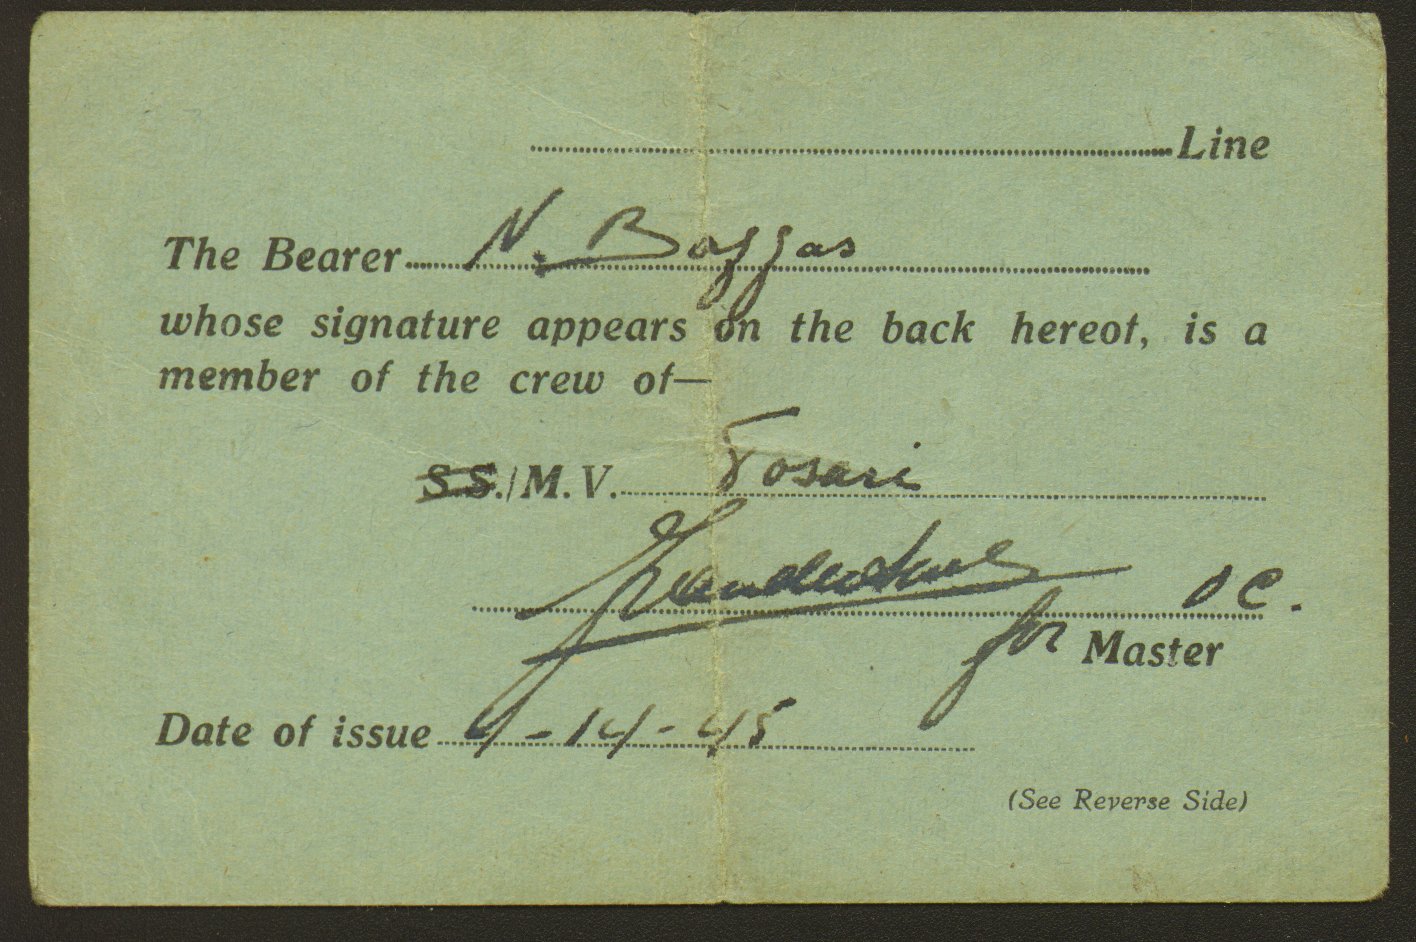 Line
The Bearer N. Baggas
whose signature appears on the back hereof, is a
member of the crew of—
SS./M.V. Tosari
OC.
for Master
Date of issue 4-14-45
(See Reverse Side)